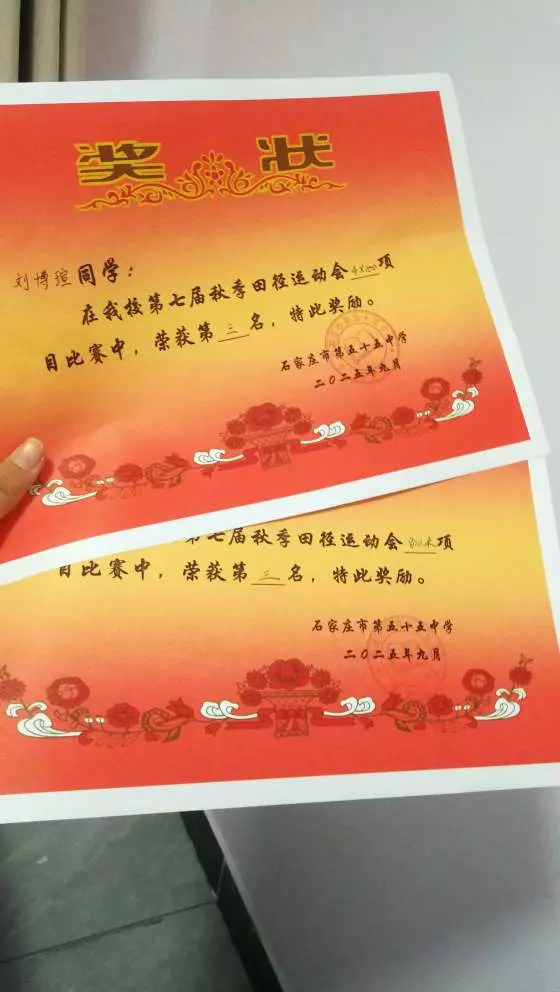 奖 状
刘博瑄同学：
在我校第七届秋季田径运动会4×100项
目比赛中，荣获第三名，特此奖励。
石家庄市第五十五中学
二〇二五年九月
七届秋季田径运动会 项
目比赛中，荣获第三名，特此奖励。
石家庄市第五十五中学
二〇二五年九月